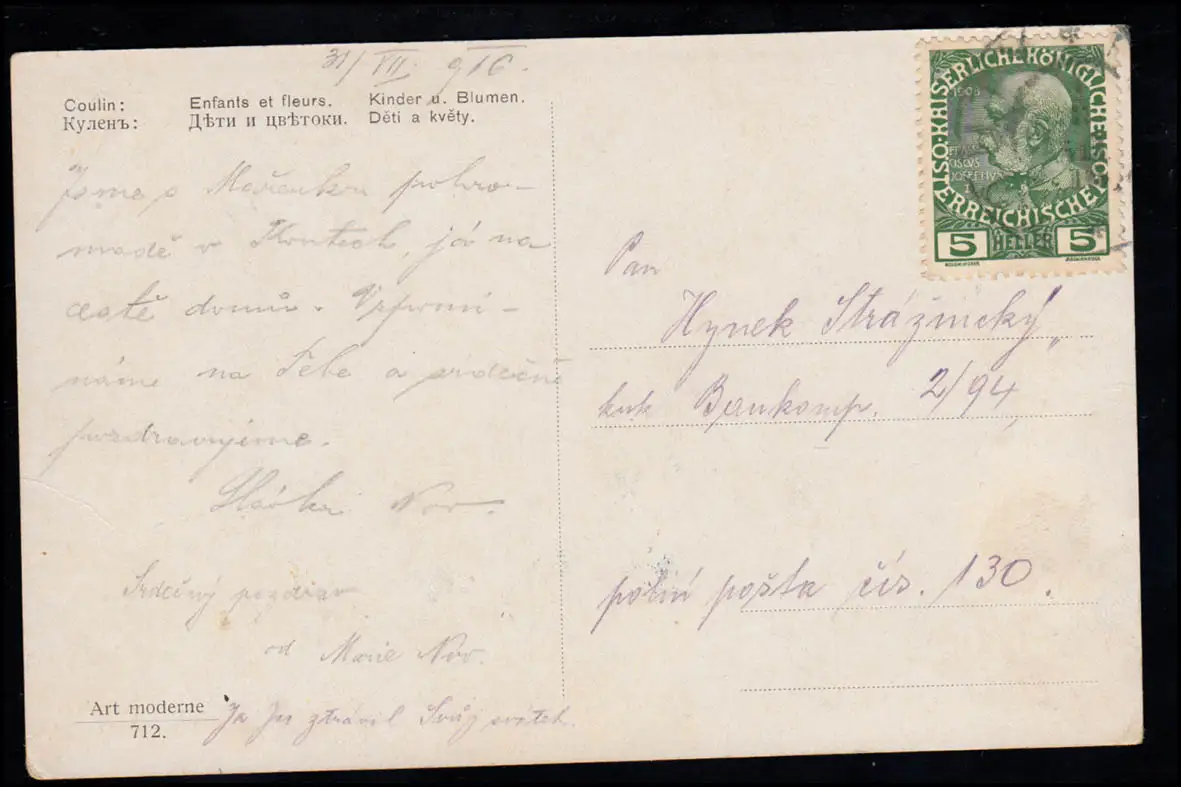 31/VII 916.
Coulin: Enfants et fleurs. Kinder u. Blumen.
Куленъ: Дѣти и цвѣтоки. Děti a květy.
Jsme s Mařenkou pohro-
madě v , já na
cestě domů. Vzpomí-
náme na Tebe a srdečně
pozdravujeme.
Nov.
Srdečný pozdrav
od Marie Nov.
Art moderne
712.
Ja ztrávil Svůj
KAISERLICHE KÖNIGLICHE
ÖSTERREICHISCHE
1908
5 HELLER 5
Pan
Hynek Strážnický
kuk Baukomp. 2/94,
polní pošta čís. 130.